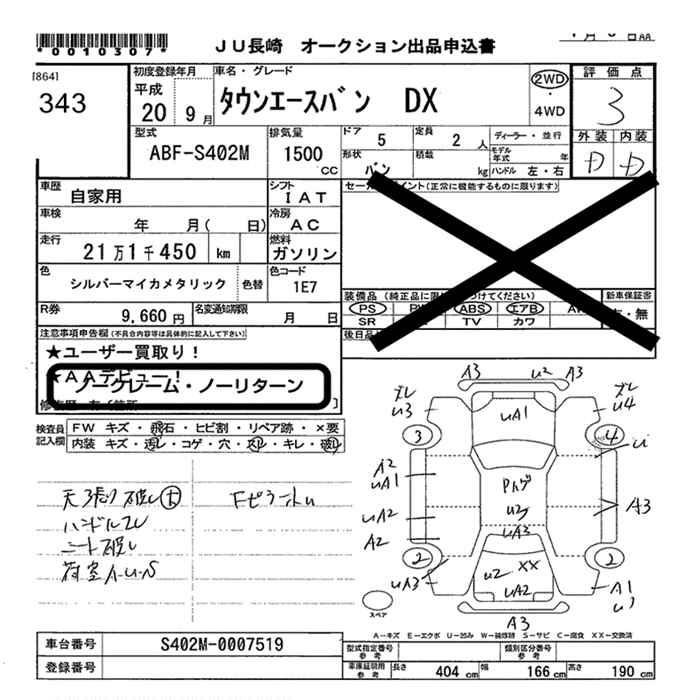 *0010307*
JU長崎 オークション出品申込書
[864]
343
初度登録年月
平成
20 9月
車名・グレード
タウンエースバン DX
2WD
・
4WD
評価点
3
外装 内装
D D
型式
ABF-S402M
排気量
1500
CC
ドア 5
定員 2 人
ディーラー・並行
形状 バン
積載 kg
モデル年式 年
ハンドル 左・右
車歴
自家用
シフト
IAT
車検
年 月( 日)
冷房
AC
走行
21万1千450 km
燃料
ガソリン
色
シルバーマイカメタリック
色替
色コード
1E7
R券
9,660円
名変通知期限
月 日
(正常に機能するものに限ります)
装備品
PS ABS エアB
SR TV カワ
新車保証書
・無
後日品
注意事項申告欄(不具合内容等は具体的に記入して下さい)
★ユーザー買取り!
★AAデビュー!
ノークレーム・ノーリターン
検査員
記入欄
FW キズ・飛石・ヒビ割・リペア跡・×要
内装 キズ・汚レ・コゲ・穴・スレ・キレ・破レ
天張り破レ大
Fピラーキレ
ハンドルスレ
シート破レ
荷室A・U・S
A3 U2 A3
ズレ
U3
ズレ
U4
UA1
3
4
A2
UA1
Pハゲ
U2
UA3
A3
UA2
A2
2
2
U2 XX
UA2
UA3
A1
A3
スペア
A-キズ E-エクボ U-凹み W-補修跡 S-サビ C-腐食 XX-交換済
車台番号
S402M-0007519
登録番号
型式指定番号
参考
類別区分番号
参考
車庫証明用
参考
長さ 404 cm 幅 166 cm 高さ 190 cm